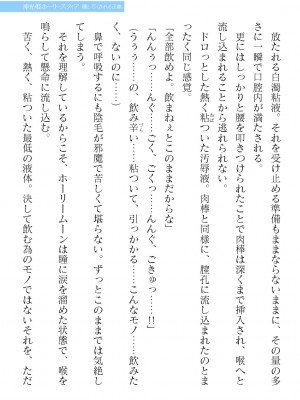 放たれる白濁粘液。それを受け止める準備もままならないままに、その量の多
さに一瞬で口腔内が満たされる。
更にはしっかりと腰を叩きつけられたことで肉棒は深くまで挿入され、喉へと
流し込まれることから逃れられない。
ドロっとした熱く粘ついた汚辱液。肉棒と同様に、膣孔に流し込まれたのとま
ったく同じ感覚。
「全部飲めよ。飲まねぇとこのままだからな」
「んんぅっ……んんぐ……ごく、ごくっ……んんぐ、ごきゅっ……!!」
（うぅぅ……の、飲み辛い……粘ついて、引っかかる……こんなモノ……飲みた
く、ないのに……）
鼻で呼吸するにも陰毛が邪魔で苦しくて堪らない。ずっとこのままでは気絶し
てしまう。
それを理解しているからこそ、ホーリームーンは瞳に涙を溜めた状態で、喉を
鳴らして懸命に流し込む。
苦く、熱く、粘ついた最低の液体。決して飲む為のモノではないそれを、ただ